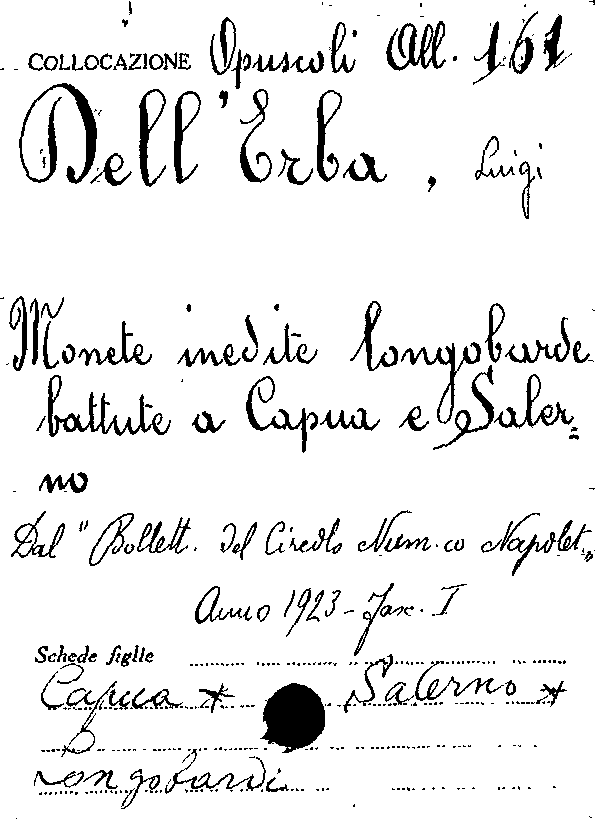 COLLOCAZIONE Opuscoli All. 161
Dell'Erba, Luigi
Monete inedite longobarde
battute a Capua e Saler=
no
Dal "Bollett. del Circolo Num.co Napolet."
Anno 1923 - Fasc. I
Schede figlie
Capua * Salerno *
Longobardi